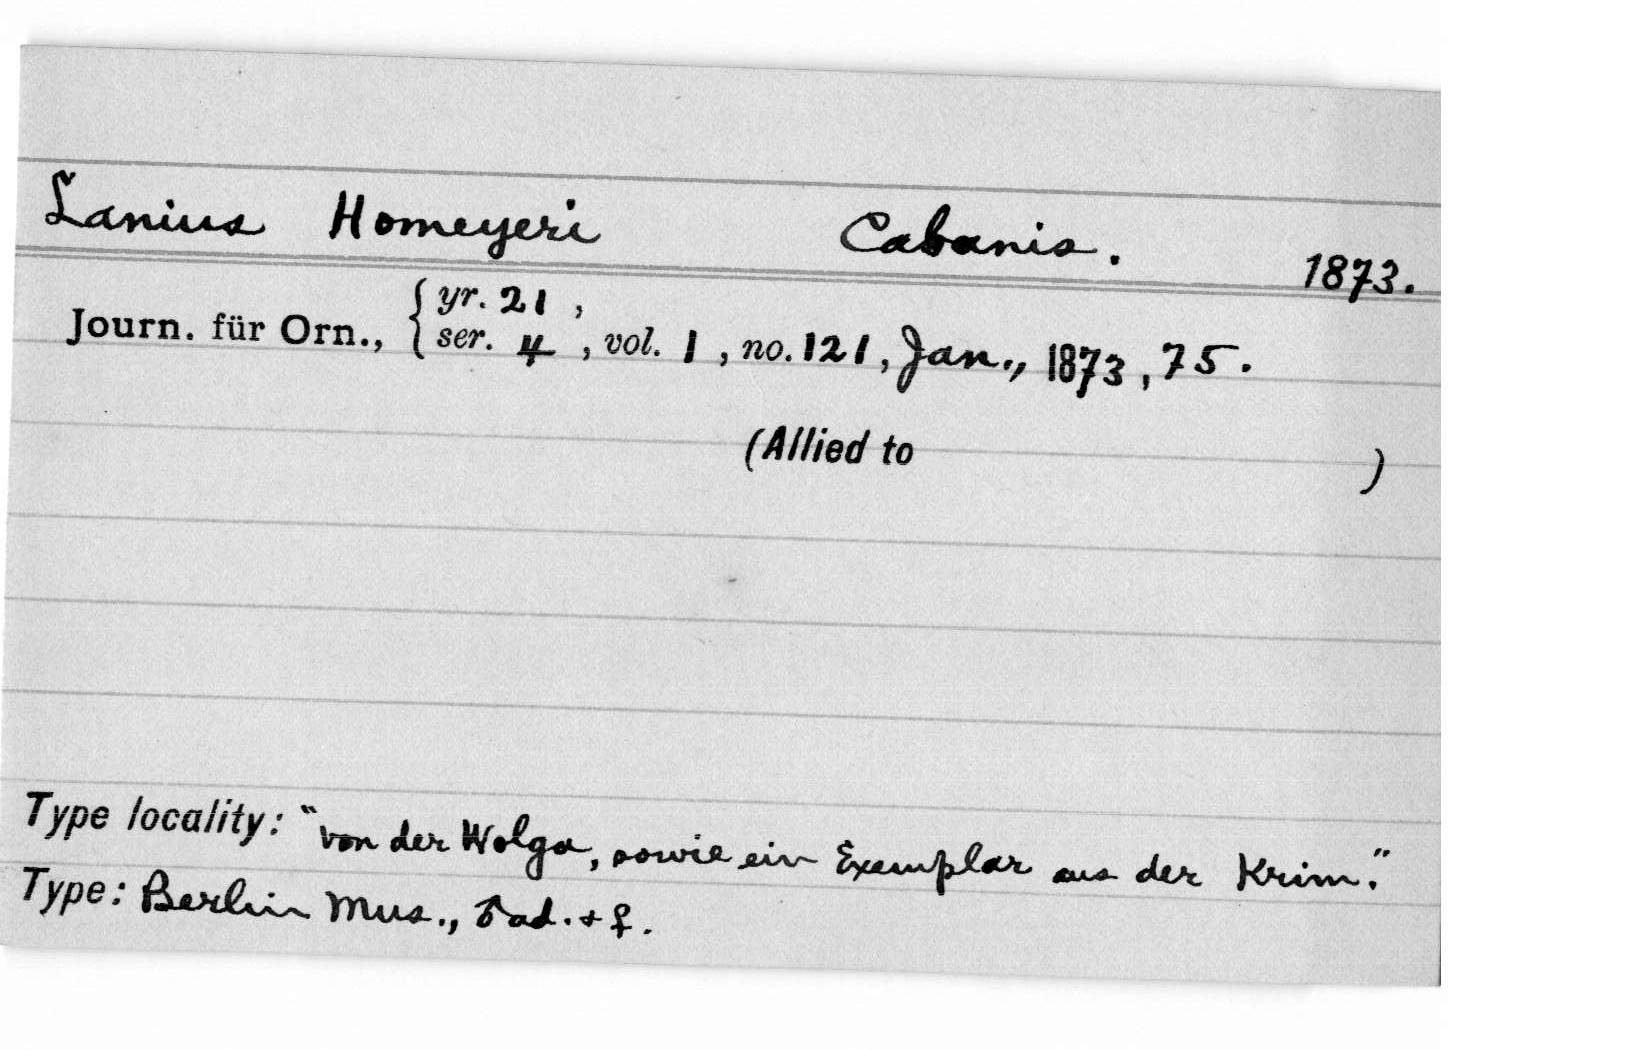 Lanius Homeyeri Cabanis. 1873.
Journ. für Orn., { yr. 21 ,
ser. 4 , vol. 1 , no. 121 , Jan., 1873 , 75 .
(Allied to )
Type locality: "von der Wolga, sowie ein Exemplar aus der Krim."
Type: Berlin Mus., ♂ ad. + ♀.